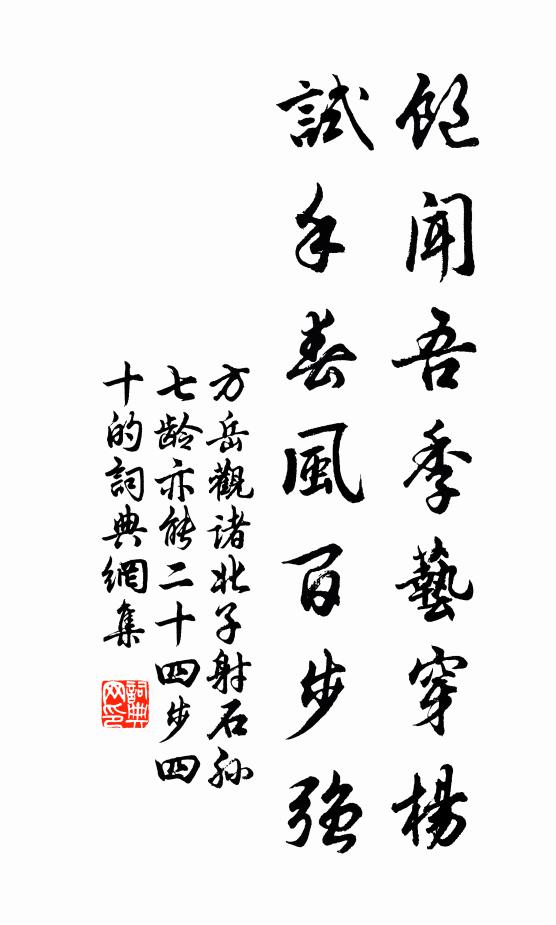 飽聞吾季藝穿楊
試手春風百步強
方岳觀諸北子射石孫
七齡亦能二十四步四
十的詞典網集
詞典
网印